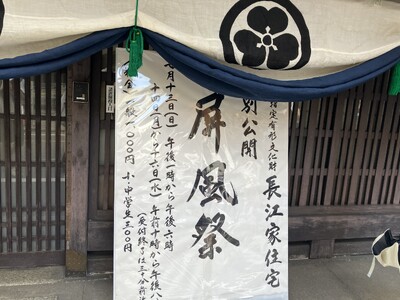 指定有形文化財 長江家住宅
別公開
屏風祭
月十三日(日) 午後一時から午後六時
十四日(月)から十六日(水) 午前十時から午後八
(受付終了は三十分前
金 一般 000円 小・中学生 三00円